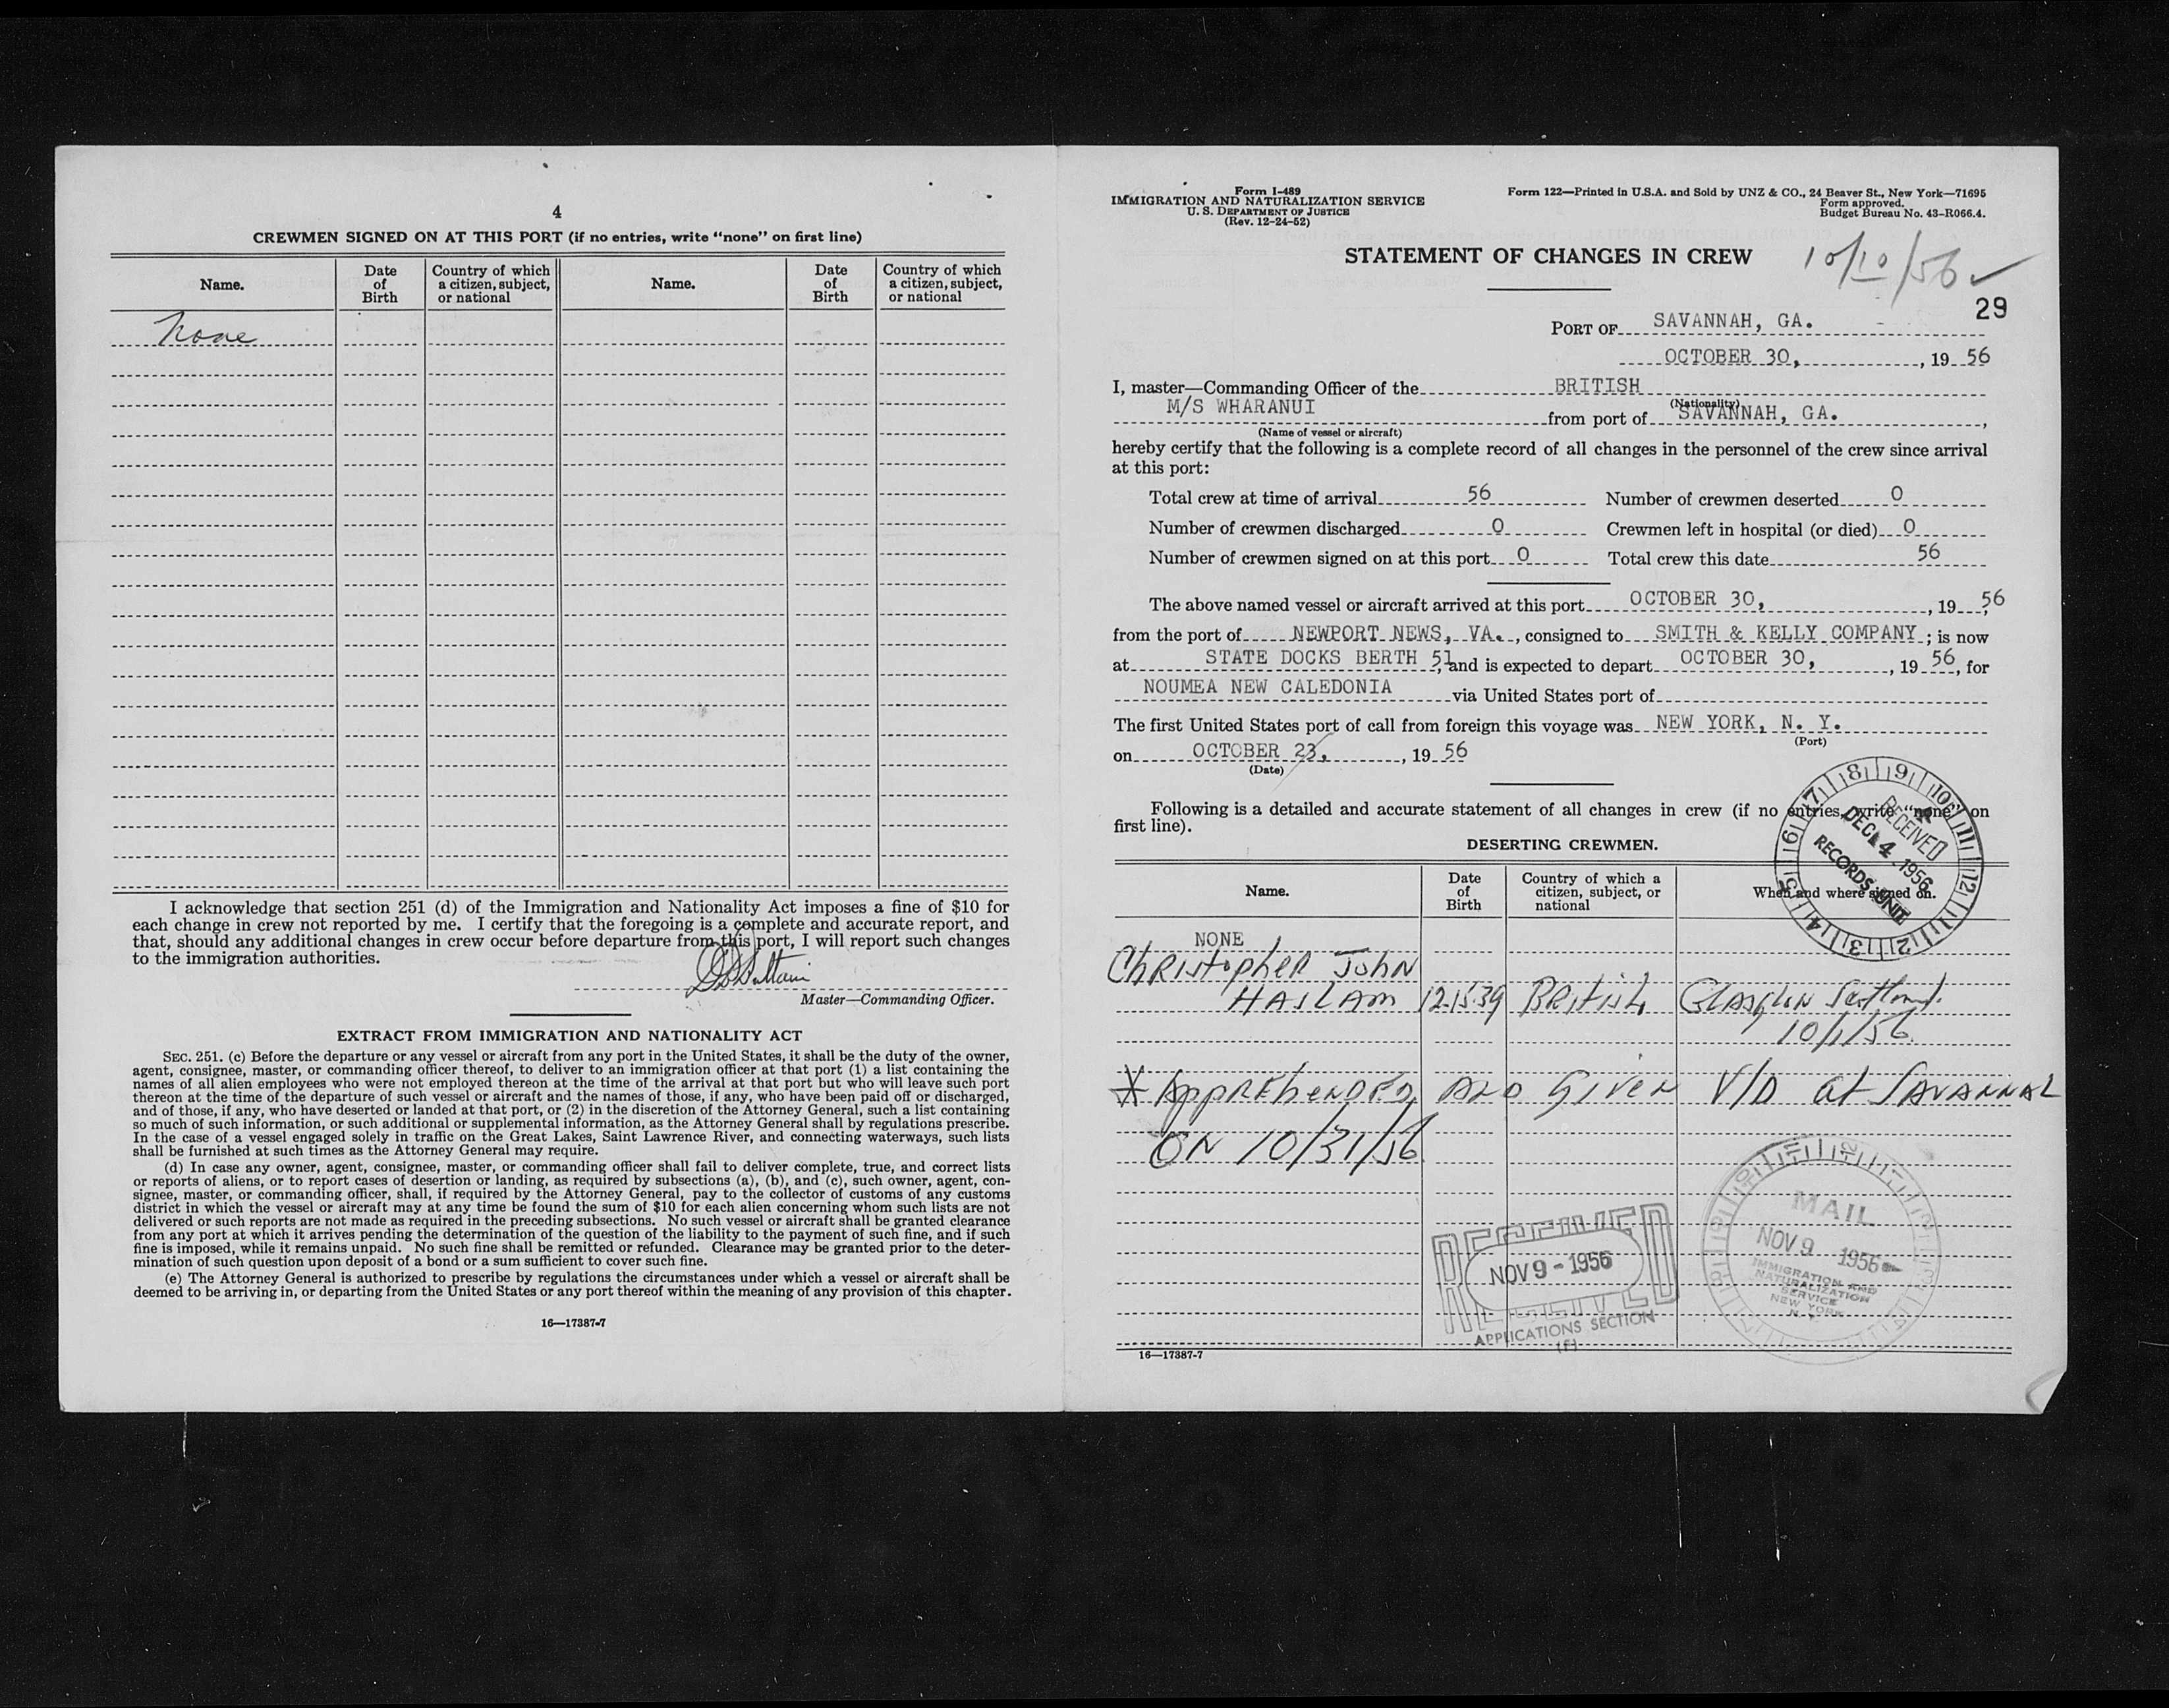 4
CREWMEN SIGNED ON AT THIS PORT (if no entries, write "none" on first line)
Name.
Date of Birth
Country of which a citizen, subject, or national
Name.
Date of Birth
Country of which a citizen, subject, or national
None
I acknowledge that section 251 (d) of the Immigration and Nationality Act imposes a fine of $10 for
each change in crew not reported by me. I certify that the foregoing is a complete and accurate report, and
that, should any additional changes in crew occur before departure from this port, I will report such changes
to the immigration authorities.
Master—Commanding Officer.
EXTRACT FROM IMMIGRATION AND NATIONALITY ACT
SEC. 251. (c) Before the departure or any vessel or aircraft from any port in the United States, it shall be the duty of the owner,
agent, consignee, master, or commanding officer thereof, to deliver to an immigration officer at that port (1) a list containing the
names of all alien employees who were not employed thereon at the time of the arrival at that port but who will leave such port
thereon at the time of the departure of such vessel or aircraft and the names of those, if any, who have been paid off or discharged,
and of those, if any, who have deserted or landed at that port, or (2) in the discretion of the Attorney General, such a list containing
so much of such information, or such additional or supplemental information, as the Attorney General shall by regulations prescribe.
In the case of a vessel engaged solely in traffic on the Great Lakes, Saint Lawrence River, and connecting waterways, such lists
shall be furnished at such times as the Attorney General may require.
(d) In case any owner, agent, consignee, master, or commanding officer shall fail to deliver complete, true, and correct lists
or reports of aliens, or to report cases of desertion or landing, as required by subsections (a), (b), and (c), such owner, agent, con-
signee, master, or commanding officer, shall, if required by the Attorney General, pay to the collector of customs of any customs
district in which the vessel or aircraft may at any time be found the sum of $10 for each alien concerning whom such lists are not
delivered or such reports are not made as required in the preceding subsections. No such vessel or aircraft shall be granted clearance
from any port at which it arrives pending the determination of the question of the liability to the payment of such fine, and if such
fine is imposed, while it remains unpaid. No such fine shall be remitted or refunded. Clearance may be granted prior to the deter-
mination of such question upon deposit of a bond or a sum sufficient to cover such fine.
(e) The Attorney General is authorized to prescribe by regulations the circumstances under which a vessel or aircraft shall be
deemed to be arriving in, or departing from the United States or any port thereof within the meaning of any provision of this chapter.
16—17387-7
Form I-489
IMMIGRATION AND NATURALIZATION SERVICE
U. S. DEPARTMENT OF JUSTICE
(Rev. 12-24-52)
Form 122—Printed in U.S.A. and Sold by UNZ & CO., 24 Beaver St., New York—71695
Form approved.
Budget Bureau No. 43-R066.4.
STATEMENT OF CHANGES IN CREW
10/10/56 ✓
29
PORT OF SAVANNAH, GA.
OCTOBER 30, , 19 56
I, master—Commanding Officer of the BRITISH
(Nationality)
M/S WHARANUI from port of SAVANNAH, GA. ,
(Name of vessel or aircraft)
hereby certify that the following is a complete record of all changes in the personnel of the crew since arrival
at this port:
Total crew at time of arrival 56 Number of crewmen deserted 0
Number of crewmen discharged 0 Crewmen left in hospital (or died) 0
Number of crewmen signed on at this port 0 Total crew this date 56
The above named vessel or aircraft arrived at this port OCTOBER 30, , 19 56,
from the port of NEWPORT NEWS, VA. , consigned to SMITH & KELLY COMPANY ; is now
at STATE DOCKS BERTH 51, and is expected to depart OCTOBER 30, , 19 56, for
NOUMEA NEW CALEDONIA via United States port of
The first United States port of call from foreign this voyage was NEW YORK, N. Y.
(Port)
on OCTOBER 23, , 19 56
(Date)
Following is a detailed and accurate statement of all changes in crew (if no entries, write "none" on
first line).
DESERTING CREWMEN.
8 9 10 11 12 1 2 3 4 5 6 7
RECEIVED
DEC 14 1956
RECORDS UNIT
Name.
Date of Birth
Country of which a citizen, subject, or national
When and where signed on.
NONE
Christopher John
HASLAM 12-15-39 British Glasgow Scotland.
10/1/56
* Apprehended and Given V/D at SAVANNAH
ON 10/31/56
RECEIVED
NOV 9 - 1956
APPLICATIONS SECTION
MAIL
NOV 9 1956
IMMIGRATION AND
NATURALIZATION
SERVICE
NEW YORK
16—17387-7